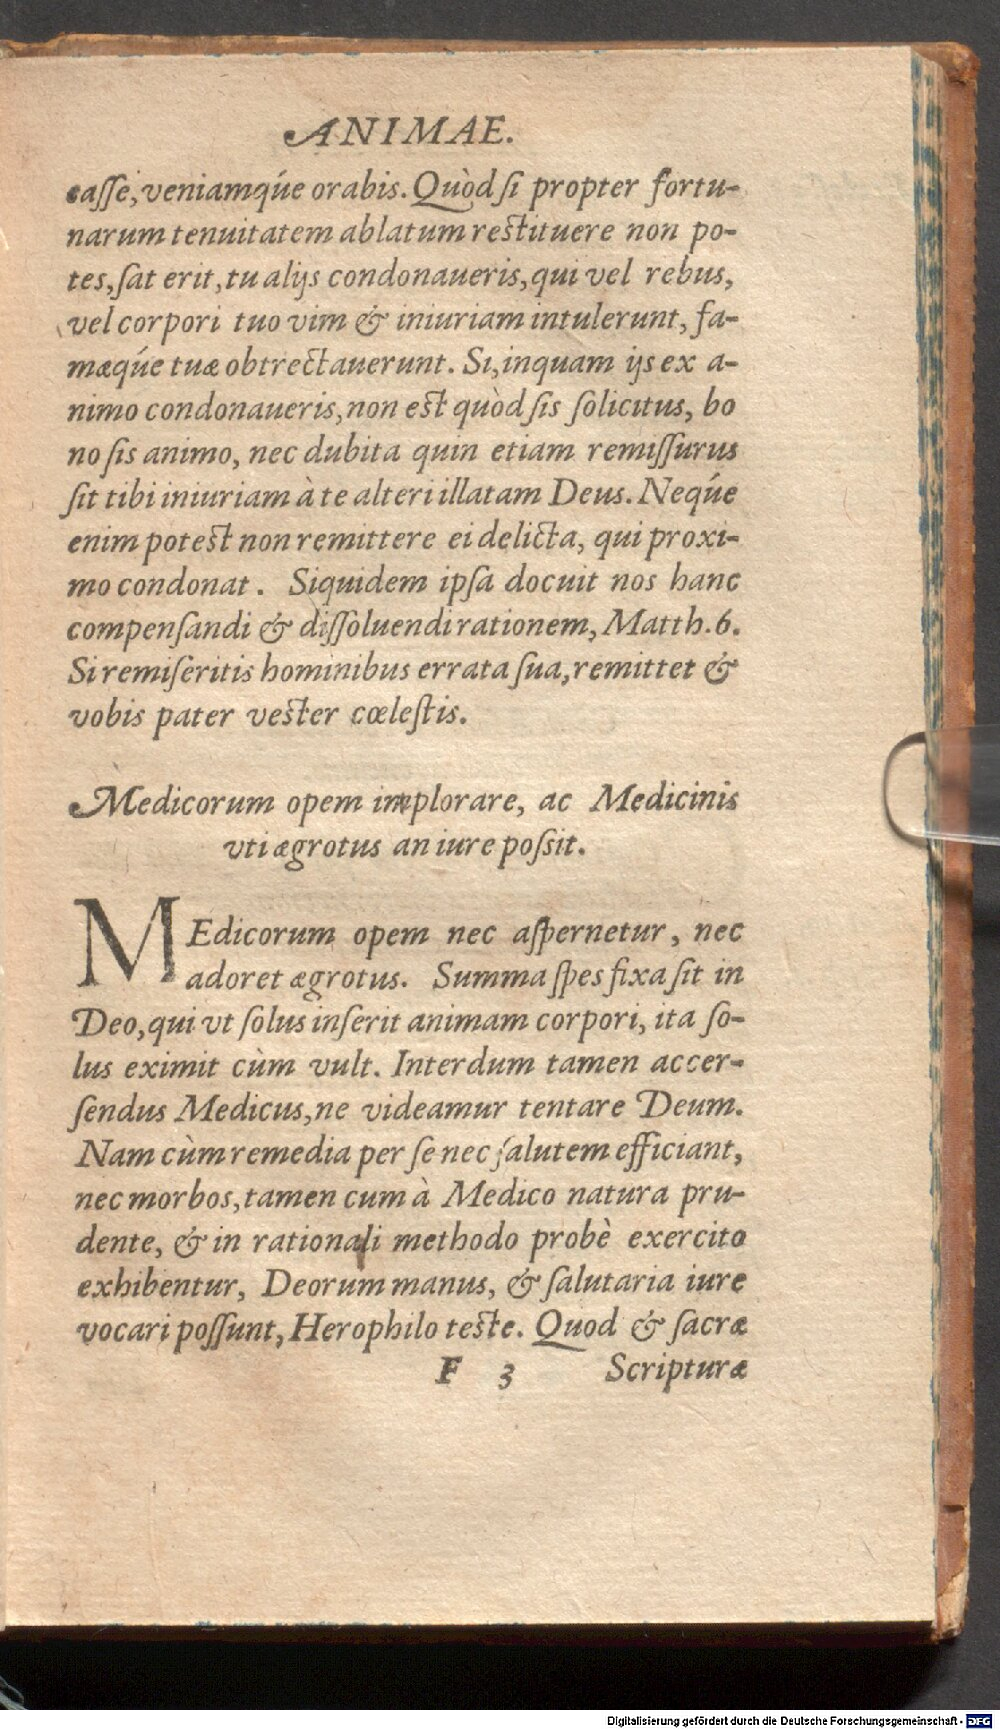 ANIMAE.
casse, veniamq́ue orabis. Quòd si propter fortu-
narum tenuitatem ablatum restituere non po-
tes, sat erit, tu alijs condonaueris, qui vel rebus,
vel corpori tuo vim & iniuriam intulerunt, fa-
mæq́ue tuæ obtrectauerunt. Si, inquam ijs ex a-
nimo condonaueris, non est quòd sis solicitus, bo
no sis animo, nec dubita quin etiam remissurus
sit tibi iniuriam à te alteri illatam Deus. Neq́ue
enim potest non remittere ei delicta, qui proxi-
mo condonat. Siquidem ipsa docuit nos hanc
compensandi & dissoluendi rationem, Matth. 6.
Si remiseritis hominibus errata sua, remittet &
vobis pater vester cœlestis.
Medicorum opem implorare, ac Medicinis
vti ægrotus an iure possit.
MEdicorum opem nec aspernetur, nec
adoret ægrotus. Summa spes fixa sit in
Deo, qui vt solus inserit animam corpori, ita so-
lus eximit cùm vult. Interdum tamen accer-
sendus Medicus, ne videamur tentare Deum.
Nam cùm remedia per se nec salutem efficiant,
nec morbos, tamen cum à Medico natura pru-
dente, & in rationali methodo probè exercito
exhibentur, Deorum manus, & salutaria iure
vocari possunt, Herophilo teste. Quod & sacræ
F 3 Scripturæ
Digitalisierung gefördert durch die Deutsche Forschungsgemeinschaft - DFG